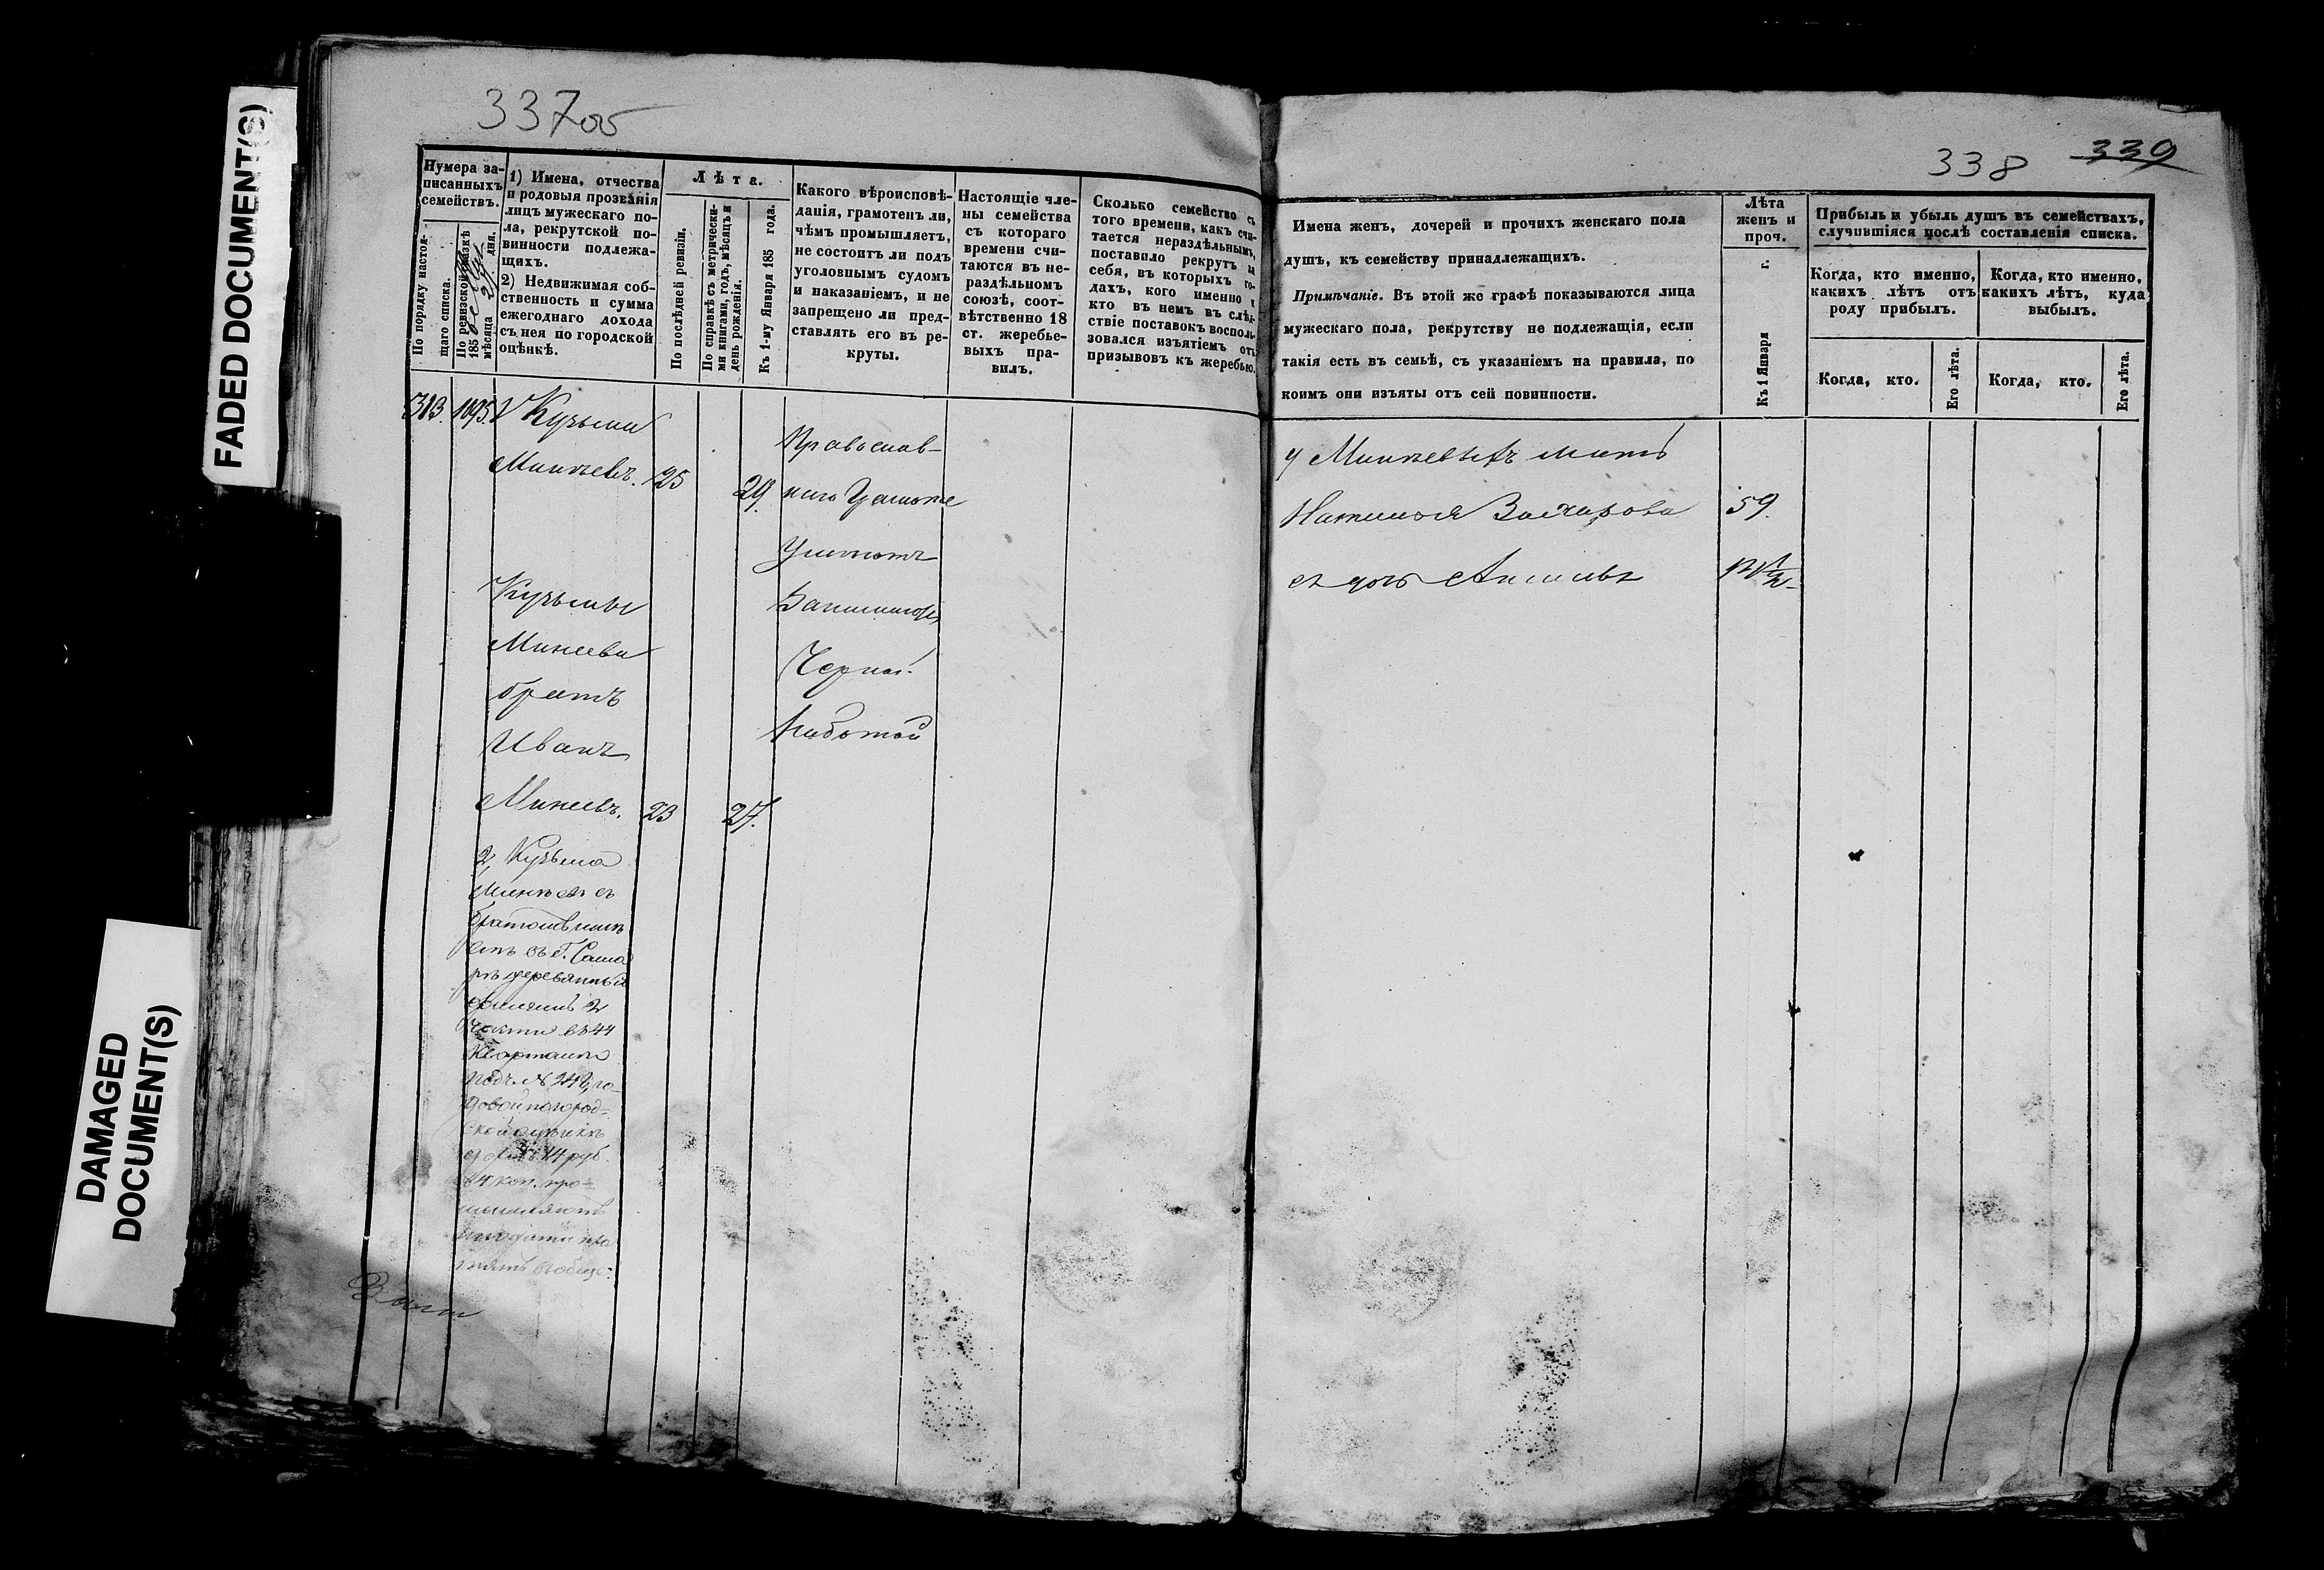 FADED DOCUMENT(S)
DAMAGED
DOCUMENT(S)
337об
Нумера за-
писанныхъ
семействъ.
По порядку настоя-
щаго списка.
По ревизской сказкѣ
185
мѣсяца 24 дня.
1) Имена, отчества
и родовыя прозванія
лицъ мужескаго по-
ла, рекрутской по-
винности подлежа-
щихъ.
2) Недвижимая соб-
ственность и сумма
ежегоднаго дохода
съ нея по городской
оцѣнкѣ.
Лѣта.
По послѣдней ревизіи.
По справкѣ съ метрически-
ми книгами, годъ, мѣсяцъ и
день рожденія.
Къ 1-му Января 185 года.
Какого вѣроисповѣ-
данія, грамотенъ ли,
чѣмъ промышляетъ,
не состоитъ ли подъ
уголовнымъ судомъ
и наказаніемъ, и не
запрещено ли пред-
ставлять его въ ре-
круты.
Настоящіе чле-
ны семейства
съ котораго
времени счи-
таются въ не-
раздѣльномъ
союзѣ, соот-
вѣтственно 18
ст. жеребье-
выхъ пра-
вилъ.
Сколько семейство съ
того времени, какъ счи-
тается нераздѣльнымъ,
поставило рекрутъ за
себя, въ которыхъ го-
дахъ, кого именно и
кто въ немъ въ слѣд-
ствіе поставокъ восполь-
зовался изъятіемъ отъ
призывовъ къ жеребью.
313. 1095. Кузьма
Минѣевъ. 25 29.
Кузьмы
Минеева
братъ
Иванъ
Минеевъ. 23 27.
2, Кузьма
Минѣевъ съ
братомъ
въ Г. Сама
рѣ деревянный
2
части въ 44
квартале
подъ № 248, го-
довой по город-
ской оцѣнкѣ
14 руб.
коп. про-
Православ-
наго
Занимаются
Черной
Работой
338 339
Имена женъ, дочерей и прочихъ женскаго пола
душъ, къ семейству принадлежащихъ.
Примѣчаніе. Въ этой же графѣ показываются лица
мужескаго пола, рекрутству не подлежащія, если
такія есть въ семьѣ, съ указаніемъ на правила, по
коимъ они изъяты отъ сей повинности.
Лѣта
женъ и
проч.
Къ 1 Января г.
Прибыль и убыль душъ въ семействахъ,
случившіяся послѣ составленія списка.
Когда, кто именно,
какихъ лѣтъ отъ
роду прибылъ.
Когда, кто именно,
какихъ лѣтъ, куда
выбылъ.
Когда, кто.
Его лѣта.
Когда, кто.
Его лѣта.
у Минѣевыхъ мать
Наталья Захарова 59.